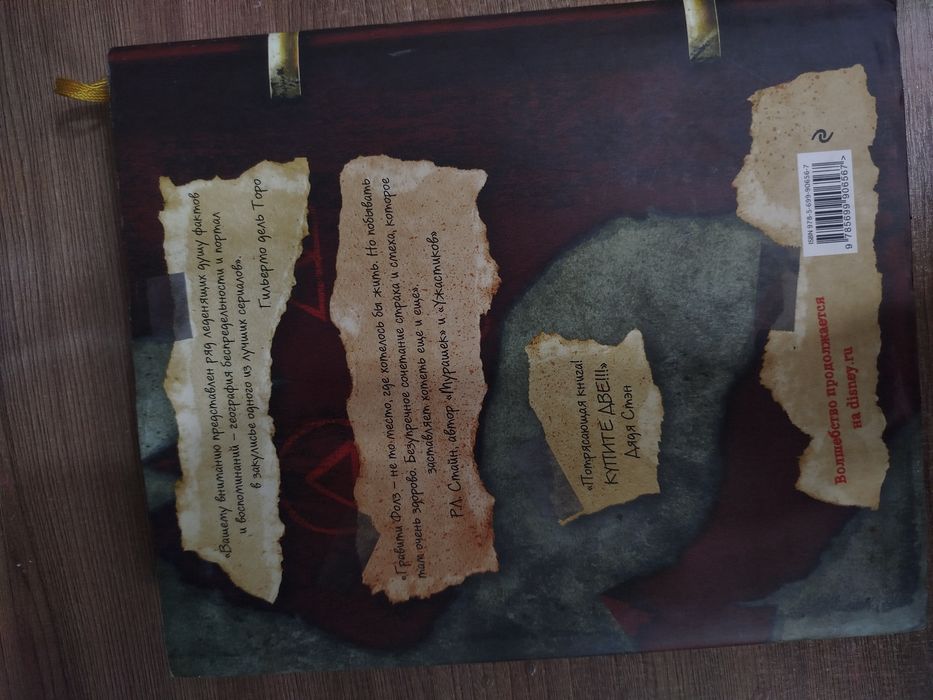 «Вашему вниманию представлен ряд леденящих душу фактов
и воспоминаний – география беспредельности и портал
в закулисье одного из лучших сериалов».
Гильермо дель Торо
«Гравити Фолз – не то место, где хотелось бы жить. Но побывать
там очень здорово. Безупречное сочетание страха и смеха, которое
заставляет хотеть еще и еще».
Р.Л. Стайн, автор «Мурашек» и «Ужастиков»
«Потрясающая книга!
КУПИТЕ ДВЕ!!!»
Дядя Стэн
ISBN 978-5-699-90656-7
9 785699 906567 >
Волшебство продолжается
на disney.ru